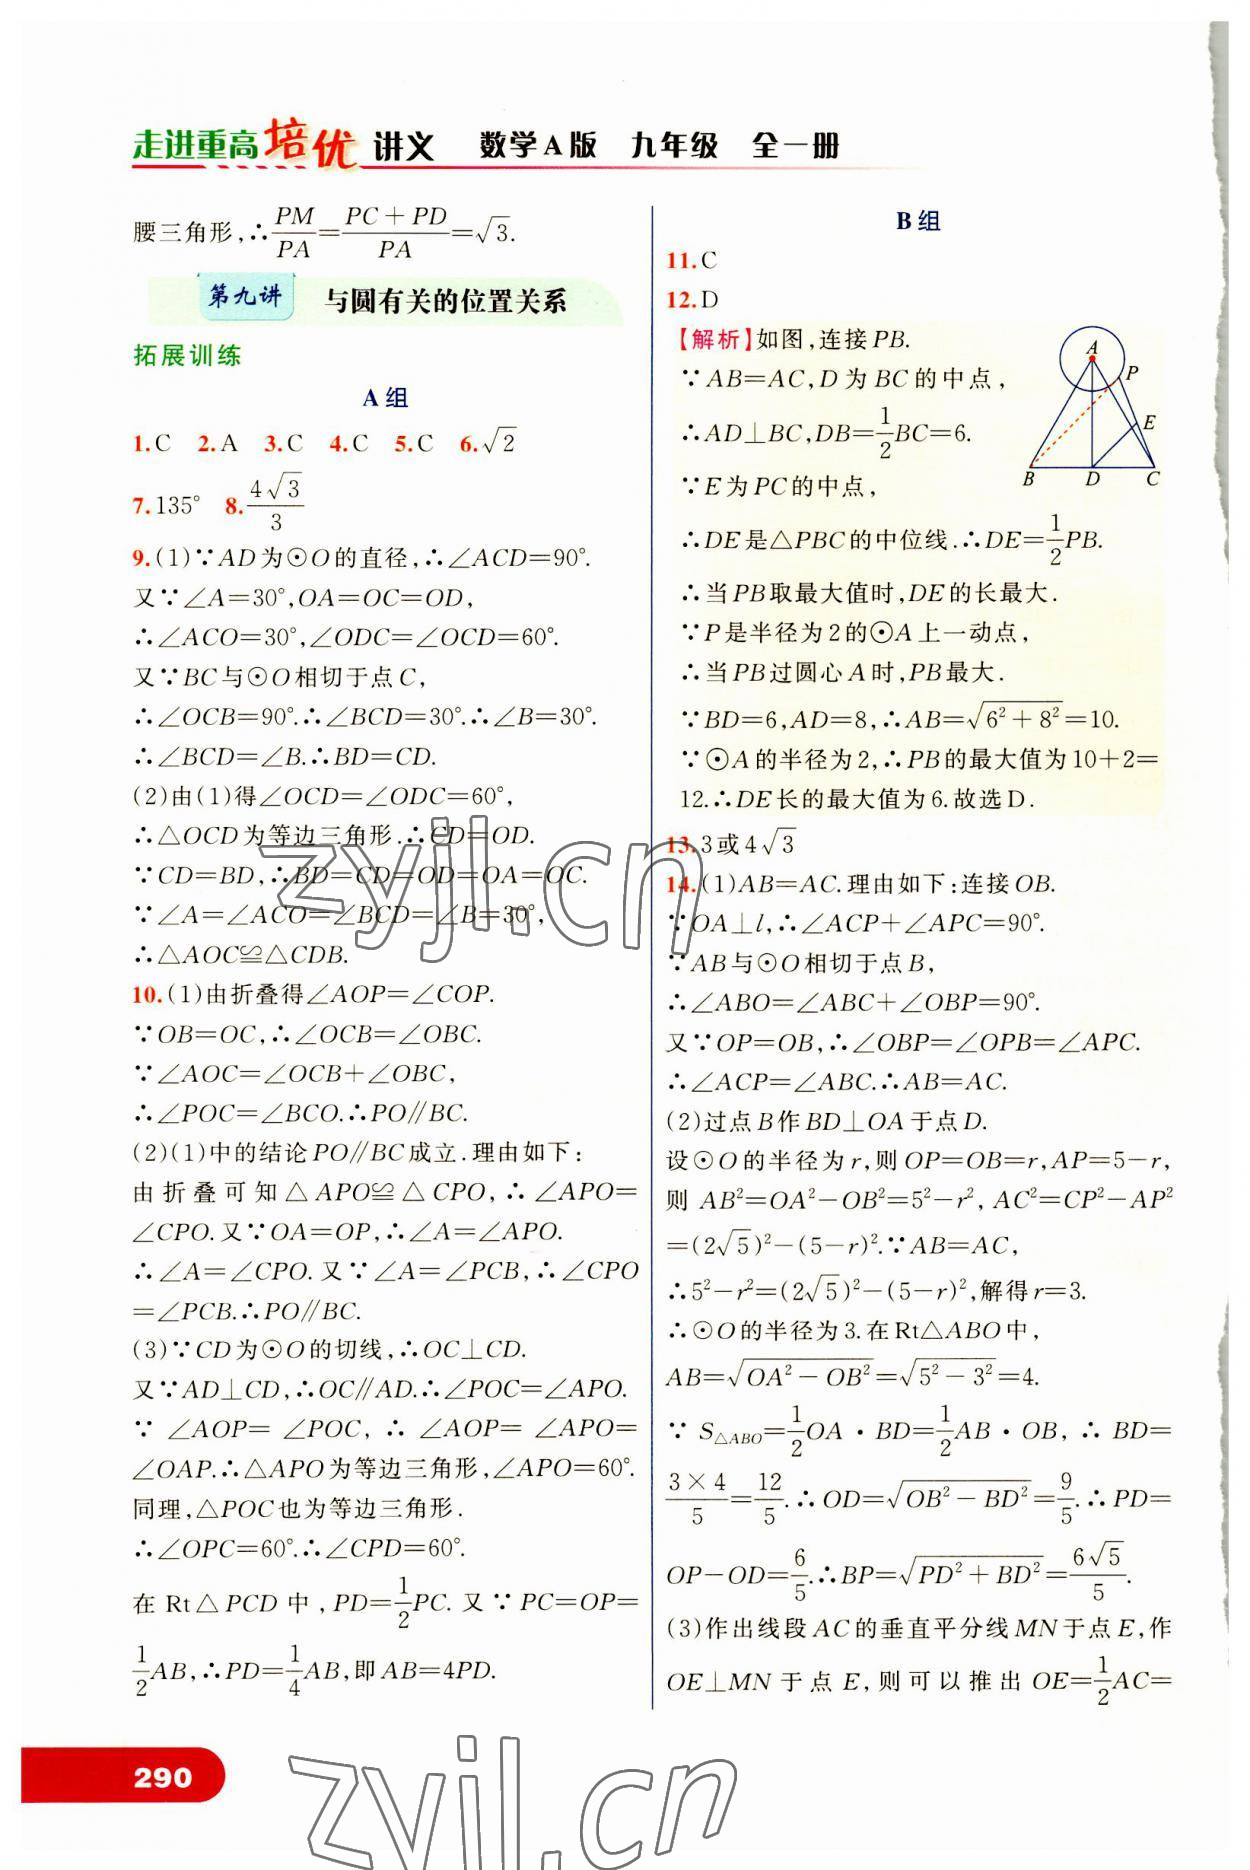 走进重高培优 讲义 数学A版 九年级 全一册
腰三角形,∴PM/PA=(PC+PD)/PA=√3.
第九讲 与圆有关的位置关系
拓展训练
A组
1.C 2.A 3.C 4.C 5.C 6.√2
7.135° 8.4√3/3
9.(1)∵AD为⊙O的直径,∴∠ACD=90°.
又∵∠A=30°,OA=OC=OD,
∴∠ACO=30°,∠ODC=∠OCD=60°.
又∵BC与⊙O相切于点C,
∴∠OCB=90°.∴∠BCD=30°.∴∠B=30°.
∴∠BCD=∠B.∴BD=CD.
(2)由(1)得∠OCD=∠ODC=60°,
∴△OCD为等边三角形.∴CD=OD.
∵CD=BD,∴BD=CD=OD=OA=OC.
∵∠A=∠ACO=∠BCD=∠B=30°,
∴△AOC≌△CDB.
10.(1)由折叠得∠AOP=∠COP.
∵OB=OC,∴∠OCB=∠OBC.
∵∠AOC=∠OCB+∠OBC,
∴∠POC=∠BCO.∴PO∥BC.
(2)(1)中的结论PO∥BC成立.理由如下:
由折叠可知△APO≌△CPO,∴∠APO=
∠CPO.又∵OA=OP,∴∠A=∠APO.
∴∠A=∠CPO.又∵∠A=∠PCB,∴∠CPO
=∠PCB.∴PO∥BC.
(3)∵CD为⊙O的切线,∴OC⊥CD.
又∵AD⊥CD,∴OC∥AD.∴∠POC=∠APO.
∵∠AOP=∠POC,∴∠AOP=∠APO=
∠OAP.∴△APO为等边三角形,∠APO=60°.
同理,△POC也为等边三角形.
∴∠OPC=60°.∴∠CPD=60°.
在Rt△PCD中,PD=1/2PC.又∵PC=OP=
1/2AB,∴PD=1/4AB,即AB=4PD.
B组
11.C
12.D
【解析】如图,连接PB.
∵AB=AC,D为BC的中点,
∴AD⊥BC,DB=1/2BC=6.
∵E为PC的中点,
A
P
E
B D C
∴DE是△PBC的中位线.∴DE=1/2PB.
∴当PB取最大值时,DE的长最大.
∵P是半径为2的⊙A上一动点,
∴当PB过圆心A时,PB最大.
∵BD=6,AD=8,∴AB=√(6²+8²)=10.
∵⊙A的半径为2,∴PB的最大值为10+2=
12.∴DE长的最大值为6.故选D.
13.3或4√3
14.(1)AB=AC.理由如下:连接OB.
∵OA⊥l,∴∠ACP+∠APC=90°.
∵AB与⊙O相切于点B,
∴∠ABO=∠ABC+∠OBP=90°.
又∵OP=OB,∴∠OBP=∠OPB=∠APC.
∴∠ACP=∠ABC.∴AB=AC.
(2)过点B作BD⊥OA于点D.
设⊙O的半径为r,则OP=OB=r,AP=5-r,
则AB²=OA²-OB²=5²-r²,AC²=CP²-AP²
=(2√5)²-(5-r)².∵AB=AC,
∴5²-r²=(2√5)²-(5-r)²,解得r=3.
∴⊙O的半径为3.在Rt△ABO中,
AB=√(OA²-OB²)=√(5²-3²)=4.
∵S△ABO=1/2OA·BD=1/2AB·OB,∴BD=
(3×4)/5=12/5.∴OD=√(OB²-BD²)=9/5.∴PD=
OP-OD=6/5.∴BP=√(PD²+BD²)=6√5/5.
(3)作出线段AC的垂直平分线MN于点E,作
OE⊥MN于点E,则可以推出OE=1/2AC=
290
zyjl.cn
zyjl.cn